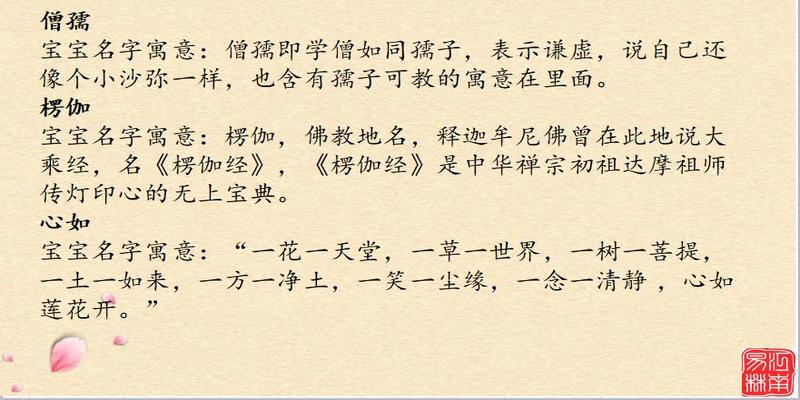 僧孺
宝宝名字寓意：僧孺即学僧如同孺子，表示谦虚，说自己还
像个小沙弥一样，也含有孺子可教的寓意在里面。
楞伽
宝宝名字寓意：楞伽，佛教地名，释迦牟尼佛曾在此地说大
乘经，名《楞伽经》，《楞伽经》是中华禅宗初祖达摩祖师
传灯印心的无上宝典。
心如
宝宝名字寓意：“一花一天堂，一草一世界，一树一菩提，
一土一如来，一方一净土，一笑一尘缘，一念一清静 ，心如
莲花开。”
江南
易林